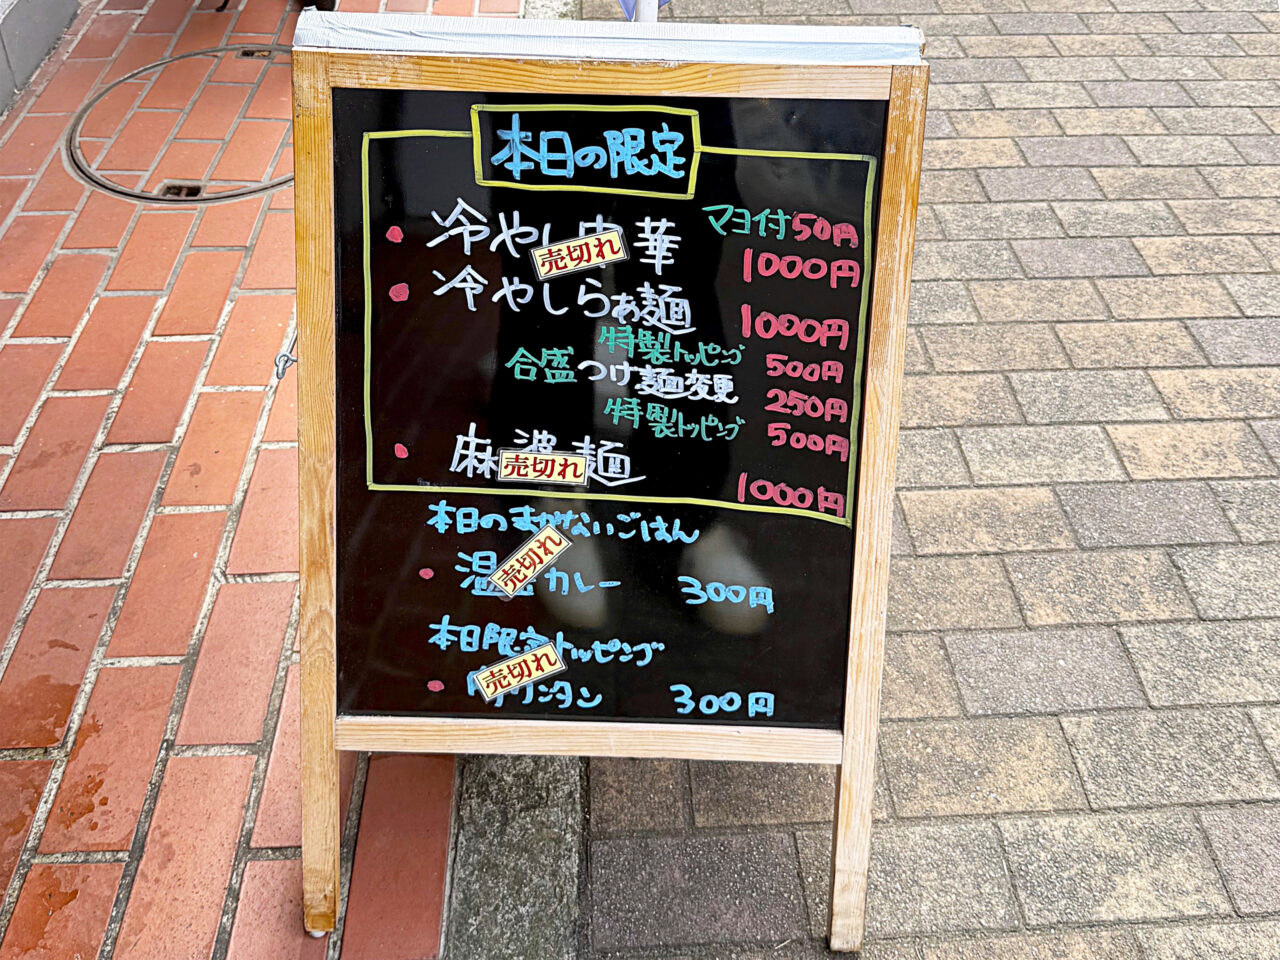 本日の限定
冷やし中華 マヨ付50円
売切れ
1000円
冷やしらぁ麺 1000円
特製トッピング 500円
合盛つけ麺変更 250円
特製トッピング 500円
麻婆麺 1000円
売切れ
本日のまかないごはん
温 カレー 300円
売切れ
本日限定トッピング
売切れ
ワンタン 300円